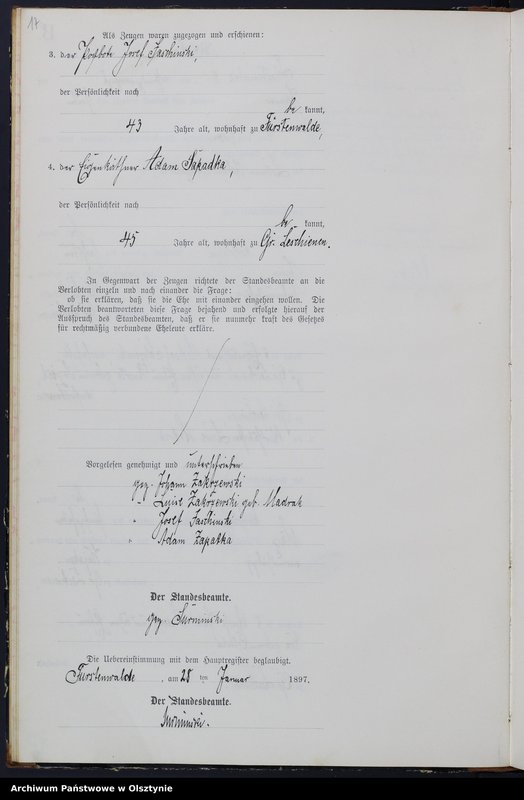 17
Als Zeugen waren zugezogen und erschienen:
3. der Josef Jaschinski,
der Persönlichkeit nach
be kannt,
43 Jahre alt, wohnhaft zu Fürstenwalde,
4. der Eigenkäthner Adam Sapadka,
der Persönlichkeit nach
be kannt,
45 Jahre alt, wohnhaft zu Gr. Leschienen.
In Gegenwart der Zeugen richtete der Standesbeamte an die
Verlobten einzeln und nach einander die Frage:
ob sie erklären, daß sie die Ehe mit einander eingehen wollen. Die
Verlobten beantworteten diese Frage bejahend und erfolgte hierauf der
Ausspruch des Standesbeamten, daß er sie nunmehr kraft des Gesetzes
für rechtmäßig verbundene Eheleute erkläre.
Vorgelesen genehmigt und unterschrieben
gez. Johann Zakrzewski
" Luise Zakrzewski geb. Madrak
" Josef Jaschinski
" Adam Zapatka
Der Standesbeamte.
gez. Surminski
Die Uebereinstimmung mit dem Hauptregister beglaubigt.
Fürstenwalde, am 28 ten Januar 1897.
Der Standesbeamte.
Surminski.
Archiwum Państwowe w Olsztynie